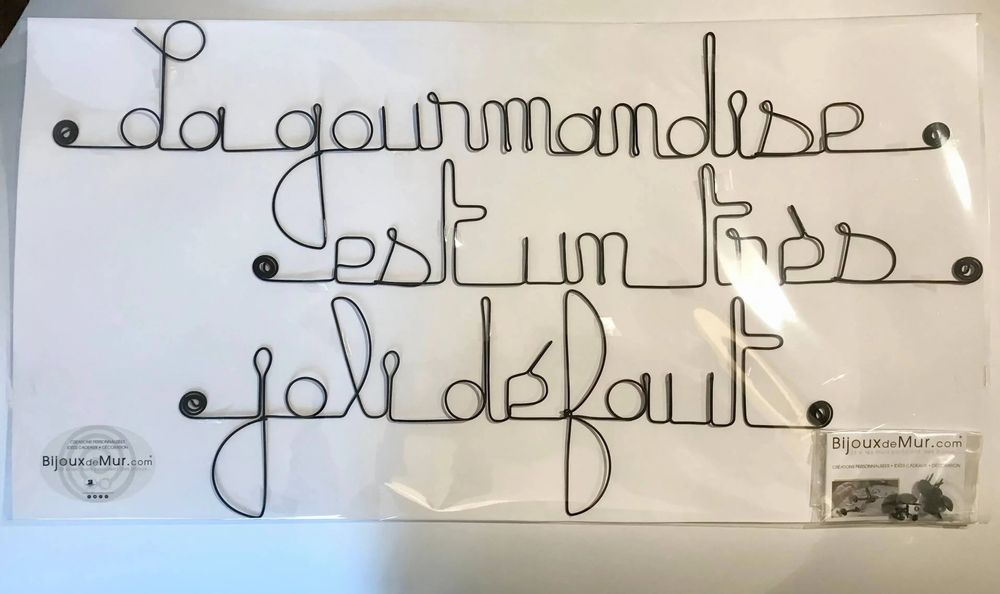 La gourmandise
est un très
joli défaut
CRÉATIONS PERSONNALISÉES
IDÉES CADEAUX • DÉCORATION
BijouxdeMur.com
BijouxdeMur.com
CRÉATIONS PERSONNALISÉES • IDÉES CADEAUX • DÉCORATION